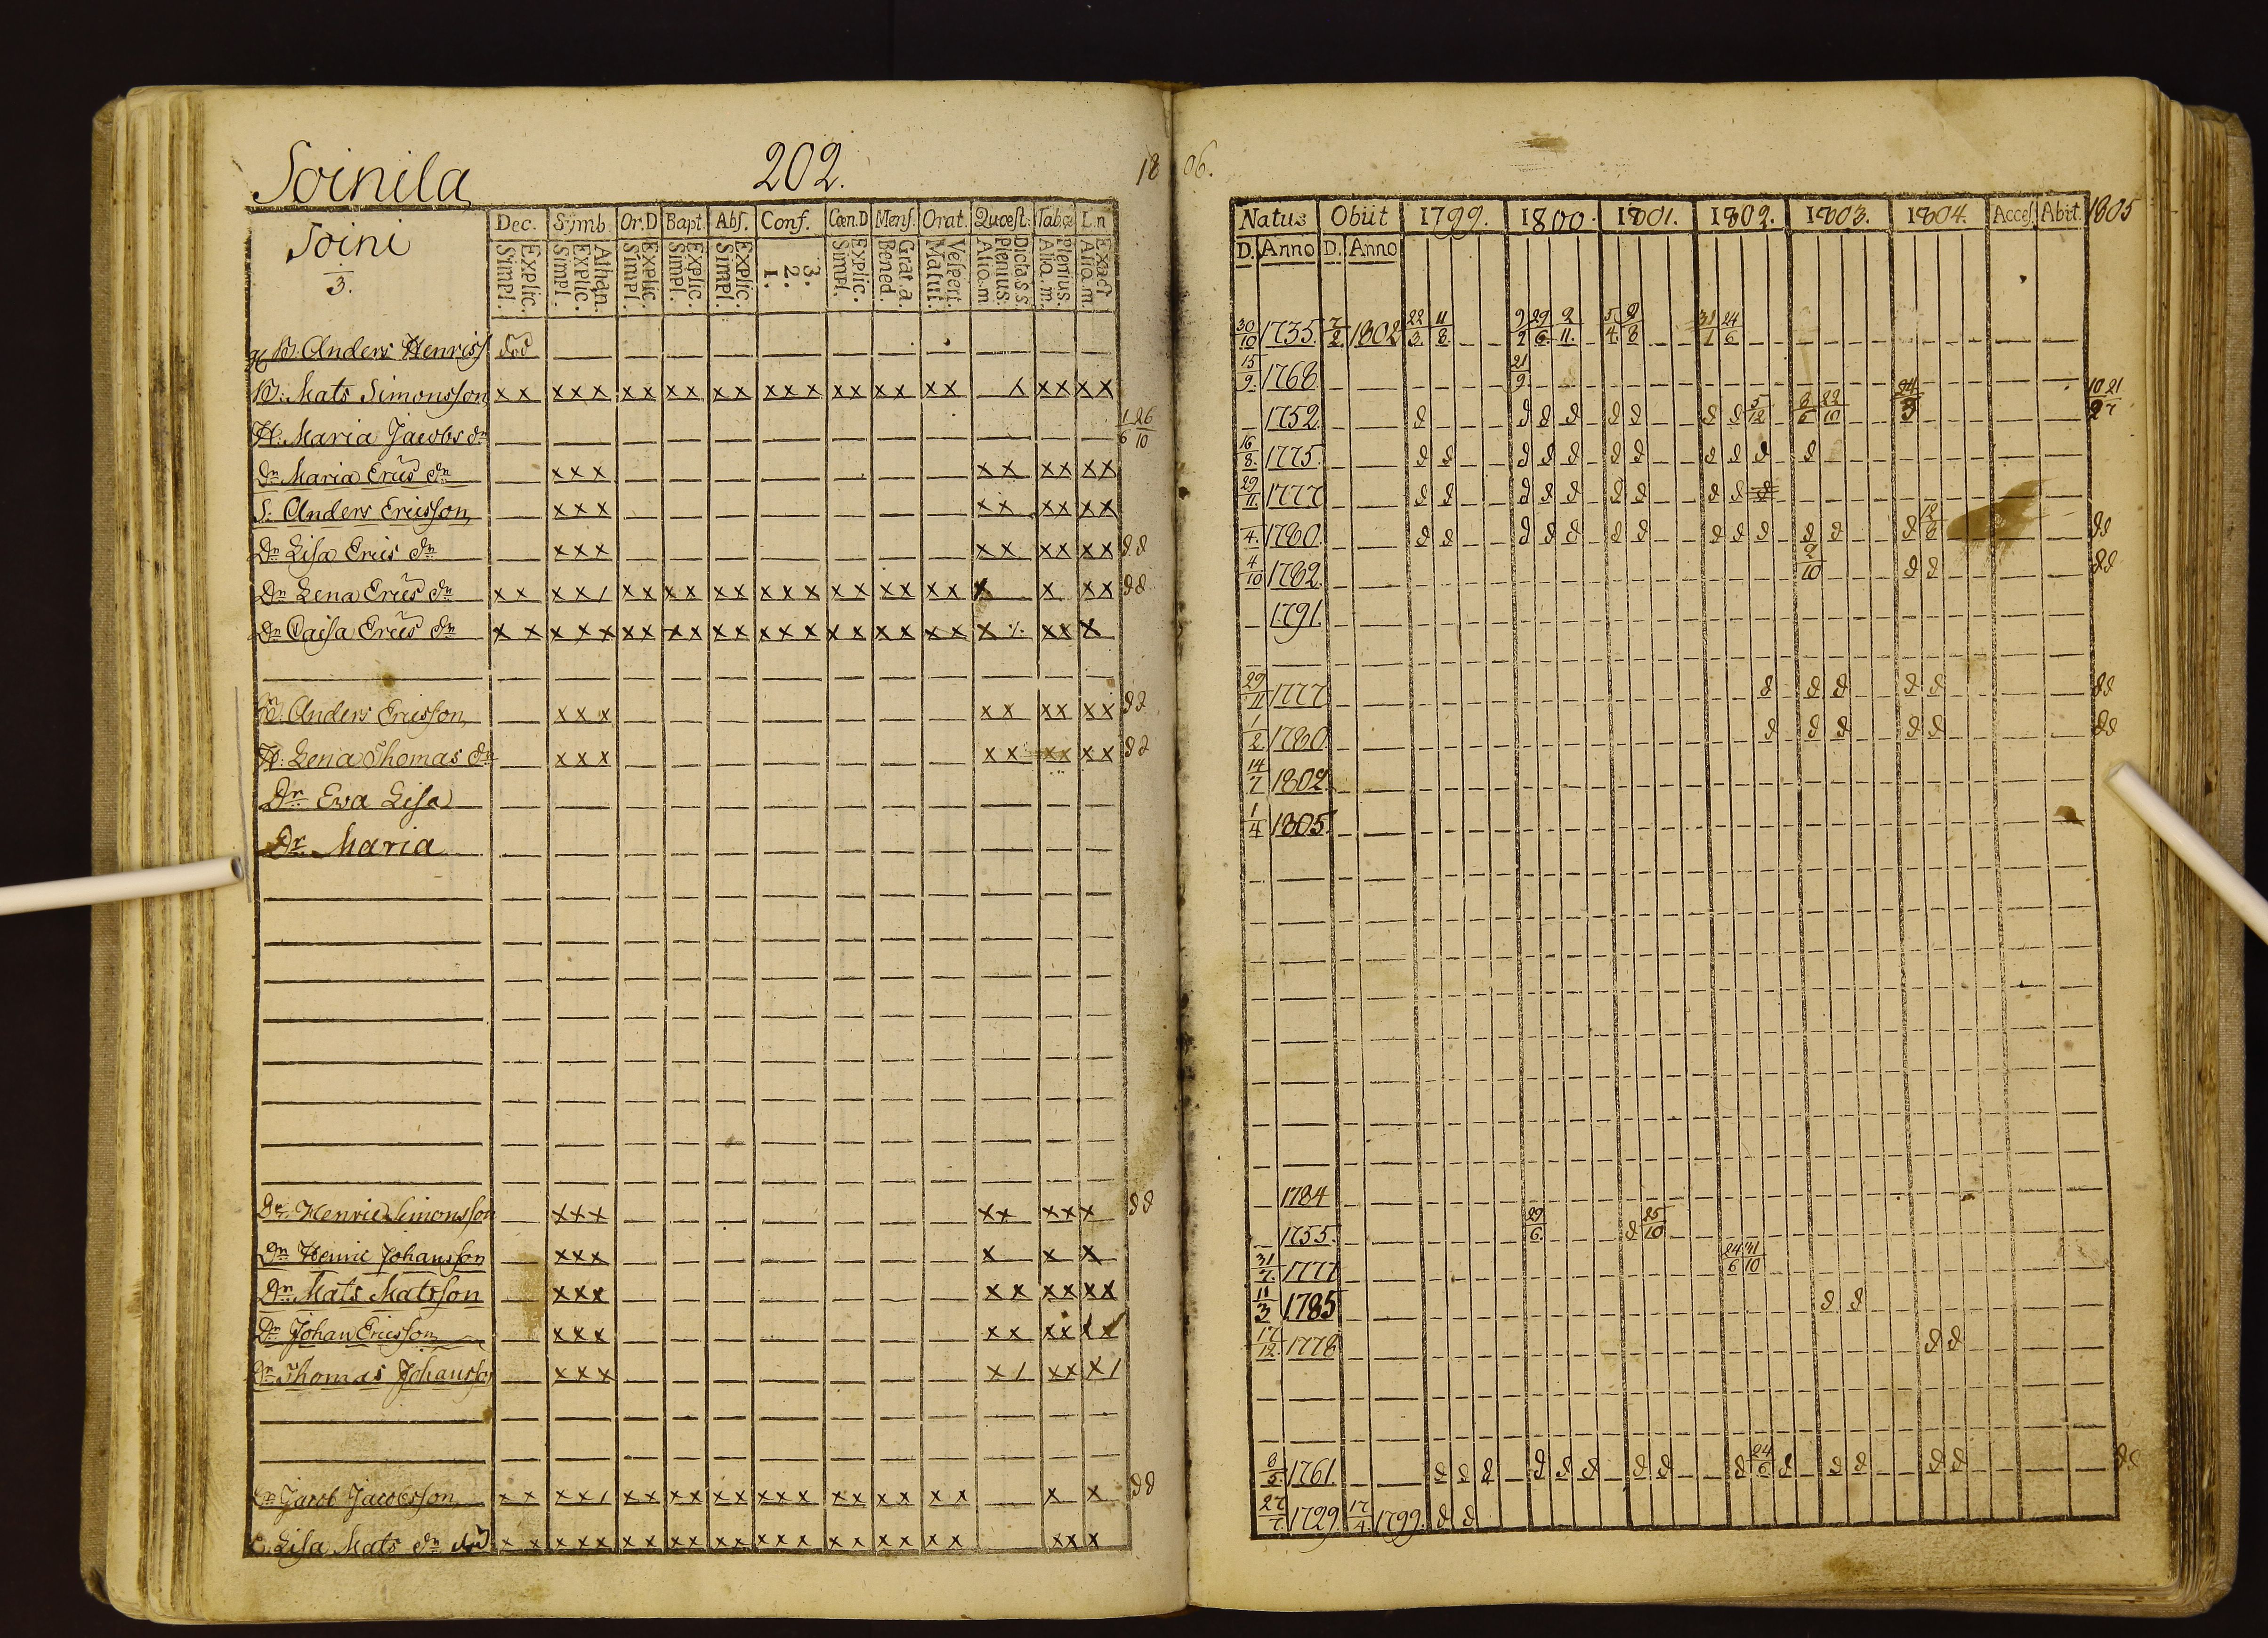 Soinila 202. 18 06.
Soini
3.
Dec. Symb. Or.D Bapt. Abs. Conf. Cœn.D Mens. Orat. Quœst. Tab.œ L.n
Explic. Simpl. Athan. Explic. Simpl. Explic. Simpl. Explic. Simpl. Explic. Simpl. 3. 2. 1. Explic. Simpl. Grat.a. Bened. Vespert. Matut. Dicta s.s. Plenius. Aliq.m. Plenius. Aliq.m. Exact Aliq.m.
B. Anders Henrics död
B. Mats Simonsson x x x x x x x x x x x x x x x x x x x x x x x x x
H. Maria Jacobs dr 1/6 26/10
Dr Maria Erics dr x x x x x x x x x
S. Anders Ericsson x x x x x x x x x
Dr Lisa Erics dr x x x x x x x x x d d
Dr Lena Erics dr x x x x / x x x x x x x x x x x x x x x x x x x x d d
Dr Caisa Erics dr x x x x x x x x x x x x x x x x x x x x x x x x
B. Anders Ericsson x x x x x x x x x d d
H. Lena Thomas dr x x x x x x x x x d d
Dr Eva Lisa
Dr Maria
Dr Henric Simonsson x x x x x x x x d d
Dn Henric Johansson x x x x x x
Dn Mats Matsson x x x x x x x x x
Dr Johan Ericsson x x x x x x x x x
Dn Thomas Johansson x x x x / x x x /
Dn Jacob Jacobsson x x x x / x x x x x x x x x x x x x x x x x d d
E. Lisa Mats dr död x x x x x x x x x x x x x x x x x x x x x x x
Natus Obiit 1799. 1800. 1801. 1802. 1803. 1804. Acces. Abit. 1805
D. Anno D. Anno
30/10 1735. 7/2 1802 22/3 11/8 9/2 29/6 2/11. 5/4 9/8 31/1 24/6
15/9. 1768. 21/9
1752. d d d d d d d d 5/12 8/6 22/10 24/3 10/2 21/7
16/8. 1775. d d d d d d d d d d d
29/11. 1777 d d d d d d d d d d
4. 1780. d d d d d d d d d d d d d 12/8 d d
4/10 1782. 2/10 d d d d
1791.
29/11 1777 d d d d d d d
1/2 1780 d d d d d d d
14/7 1802.
1/4 1805.
1784
1755. 29/6. d 25/10
31/7. 1777 24/6 31/10
11/3 1785 d d
17/12 1778 d d
8/5 1761. d d d d d d d d d 24/6 d d d d d d d
27/7 1729. 17/4 1799. d d